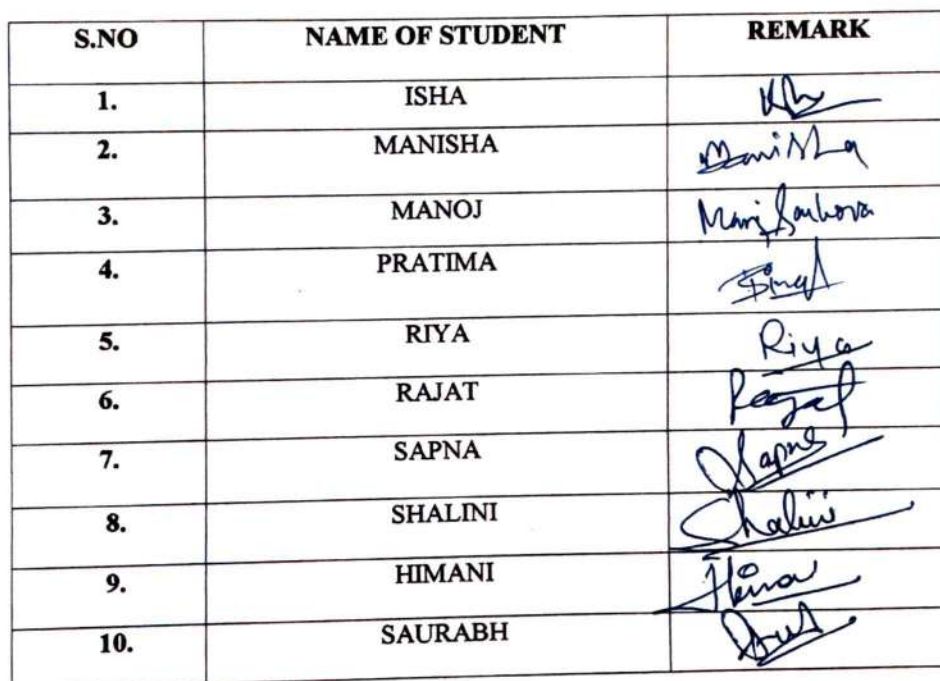 S.NO NAME OF STUDENT REMARK
1. ISHA
2. MANISHA Manisha
3. MANOJ
4. PRATIMA
5. RIYA Riya
6. RAJAT Rajat
7. SAPNA Sapna
8. SHALINI Shalini
9. HIMANI
10. SAURABH